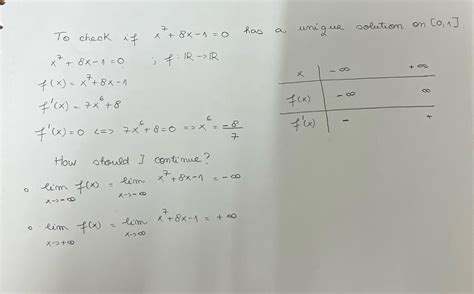 To check if x⁷ + 8x - 1 = 0 has a unique solution on [0,1]
x⁷ + 8x - 1 = 0 ; f: ℝ → ℝ
f(x) = x⁷ + 8x - 1
f'(x) = 7x⁶ + 8
f'(x) = 0 <=> 7x⁶ + 8 = 0 => x⁶ = -8/7
x | -∞ +∞
f(x) | -∞ ∞
f'(x) | - +
How should I continue?
o lim x→-∞ f(x) = lim x→-∞ x⁷ + 8x - 1 = -∞
o lim x→+∞ f(x) = lim x→∞ x⁷ + 8x - 1 = +∞